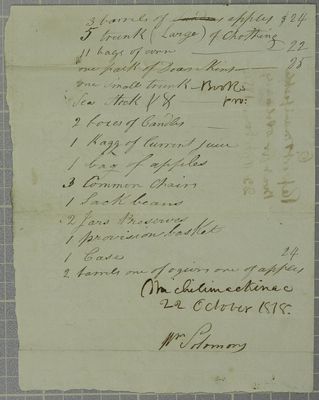 3 barrels of apples 24
5 trunk (Large) of Clothing
11 bags of corn 22
one pack of 25
one small trunk Books
Sea Stock
2 boxes of Candles
1 Kagg of
1 bag of apples
3 Common Chairs
1 Sack beans
2 Jars Preserves
1 provision basket
1 Case
2 barrels one of onions one of apples 24
Michilimackinac
22 October 1818.
Wm Solomons